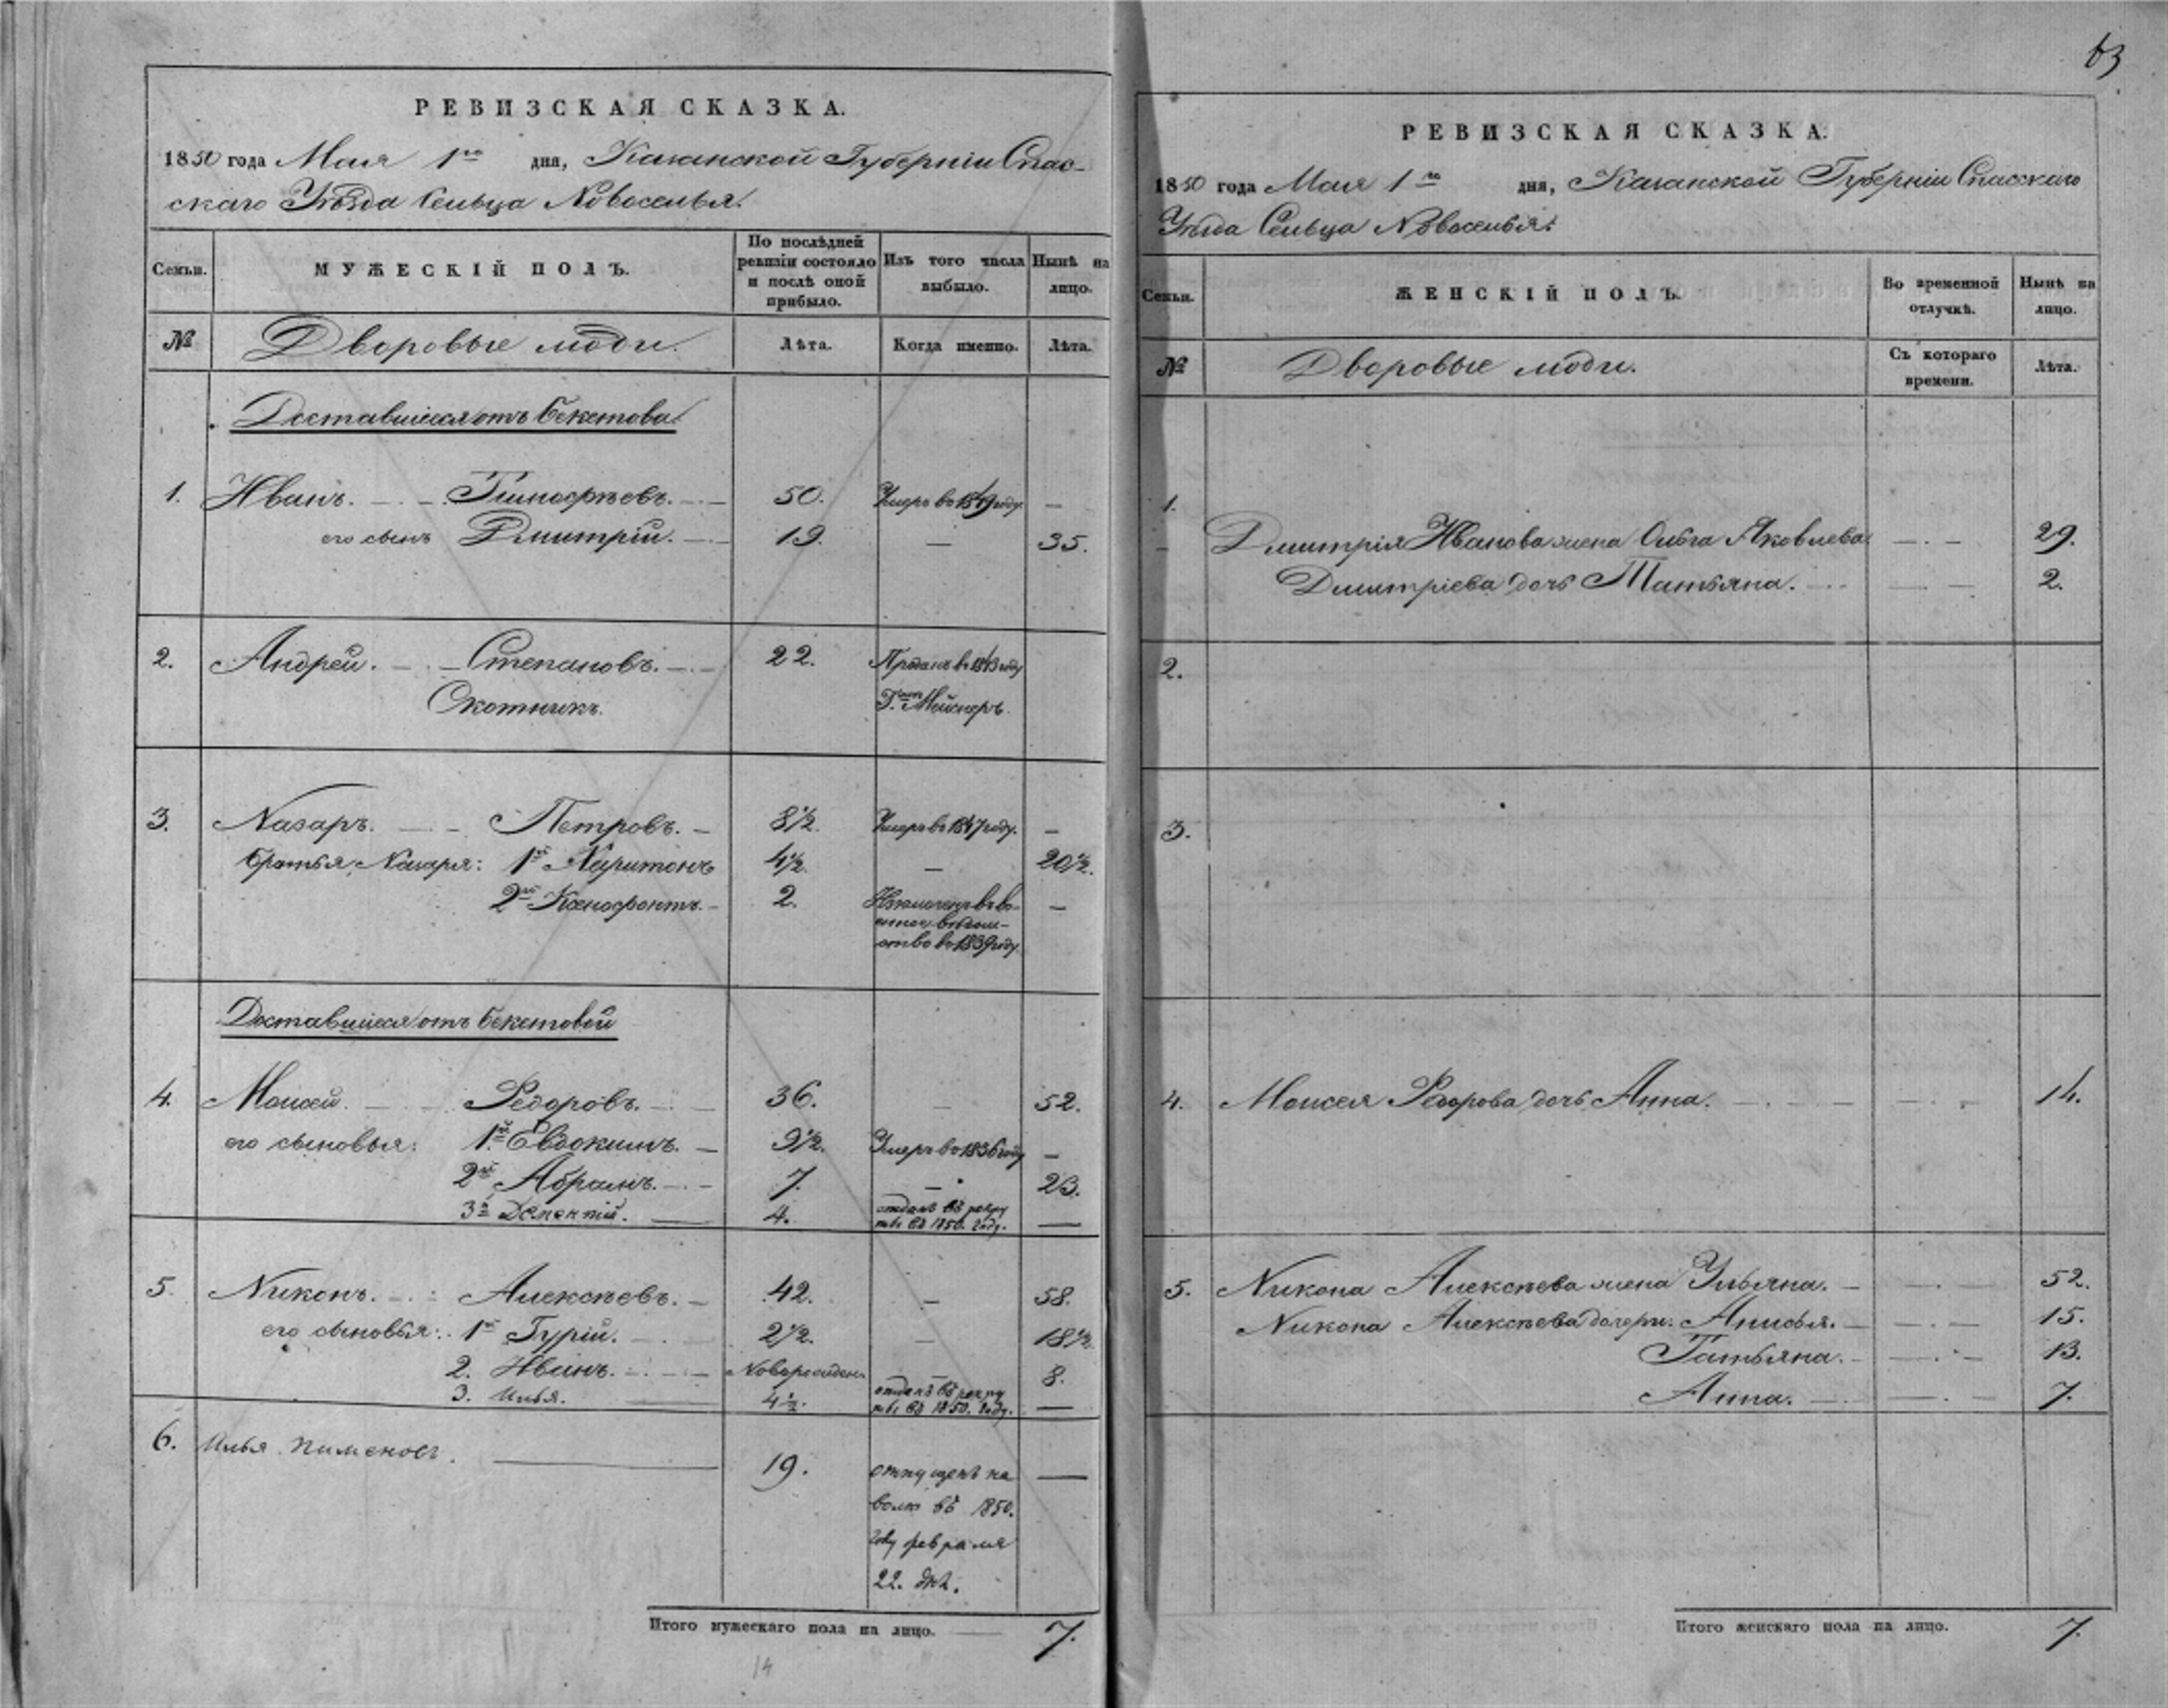 63
РЕВИЗСКАЯ СКАЗКА.
1850 года Мая 1го дня, Казанской Губерніи Спас-
скаго Уѣзда Сельца Новоселья.
Семьи. МУЖЕСКІЙ ПОЛЪ. По послѣдней ревизіи состояло и послѣ оной прибыло. Изъ того числа выбыло. Нынѣ на лицо.
№ Дворовые люди. Лѣта. Когда именно. Лѣта.
Доставшіеся отъ Бекетова
1. Иванъ. Тимофѣевъ. 50. Умеръ въ 1849 году. —
его сынъ Дмитрій. 19. — 35.
2. Андрей. Степановъ. 22. Проданъ въ 1843 году
Охотникъ. Мейснеръ.
3. Назаръ. Петровъ. 8½. Умеръ въ 1847 году. —
братья Назаря: 1й Харитонъ 4½. — 20½.
2й Ксенофонтъ. 2. Исключенъ въ во- —
енное вѣдом-
ство въ 1839 году.
Доставшіеся отъ Бекетовой
4. Моисей. Ѳедоровъ. 36. — 52.
его сыновья: 1й Евдокимъ. 9½. Умеръ въ 1836 году —
2й Абрамъ. 7. — 23.
3й Дементій. 4. отданъ въ рекру
ты въ 1850. году. —
5. Никонъ. Алексѣевъ. 42. — 58.
его сыновья: 1й Гурій. 2½. — 18½.
2. Иванъ. Новорожден. — 8.
3. Илья. 4½. отданъ въ рекру
ты въ 1850. году. —
6. Илья Пименовъ. 19. отпущенъ на —
волю въ 1850.
году февраля
22. дня.
Итого мужескаго пола на лицо. 7.
14
РЕВИЗСКАЯ СКАЗКА.
1850 года Мая 1го дня, Казанской Губерніи Спасскаго
Уѣзда Сельца Новоселья.
Семьи. ЖЕНСКІЙ ПОЛЪ. Во временной отлучкѣ. Нынѣ на лицо.
№ Дворовые люди. Съ котораго времени. Лѣта.
1.
Дмитрія Иванова жена Ольга Яковлева. — 29.
Дмитріева дочь Татьяна. — 2.
2.
3.
4. Моисея Ѳедорова дочь Анна. — 14.
5. Никона Алексѣева жена Ульяна. — 52.
Никона Алексѣева дочери: Анисья. — 15.
Татьяна. — 13.
Анна. — 7.
Итого женскаго пола на лицо. 7.